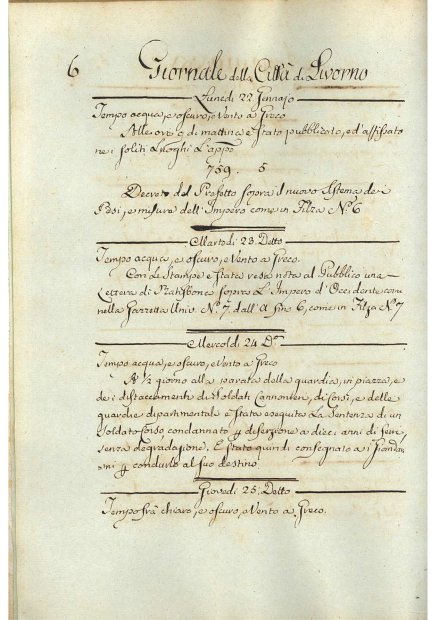 6 Giornale della Città di Livorno
Lunedì 22 Gennajo
Tempo acqua, e oscuro, e Vento a Greco
Alle ore 9 di mattina è Stato pubblicato, ed affissato
nei soliti Luoghi L'appo
759. 5
Decreto del Prefetto sopra il nuovo Sistema dei
Pesi, e misure dell'Impero come in Filza N.º 6
Martedì 23. Detto
Tempo acqua, e oscuro, e Vento a Greco.
Con Le Stampe è Stata resa nota al Pubblico una
Lettera di Ratisbona sopra L'Impero d'Occidente come
nella Gazzetta Univ. N.º 7. dall'A fino 6, come in Filza N.º 7
Mercoldì 24 Dº
Tempo acqua, e oscuro, e Vento a Greco
A ½ giorno alla parata della guardia, in piazza, e
dei distaccamenti di Soldati Cannonieri, di Corsi, e delle
guardie dipartimentale è Stata eseguita La Sentenza di un
Soldato Corso condannato p diserzione a dieci anni di ferri
senza degradazione. È Stato quindi consegnato ai Giandar
mi p condurlo al suo destino.
Giovedì 25. Detto
Tempo frà chiaro, e oscuro, e Vento a Greco.